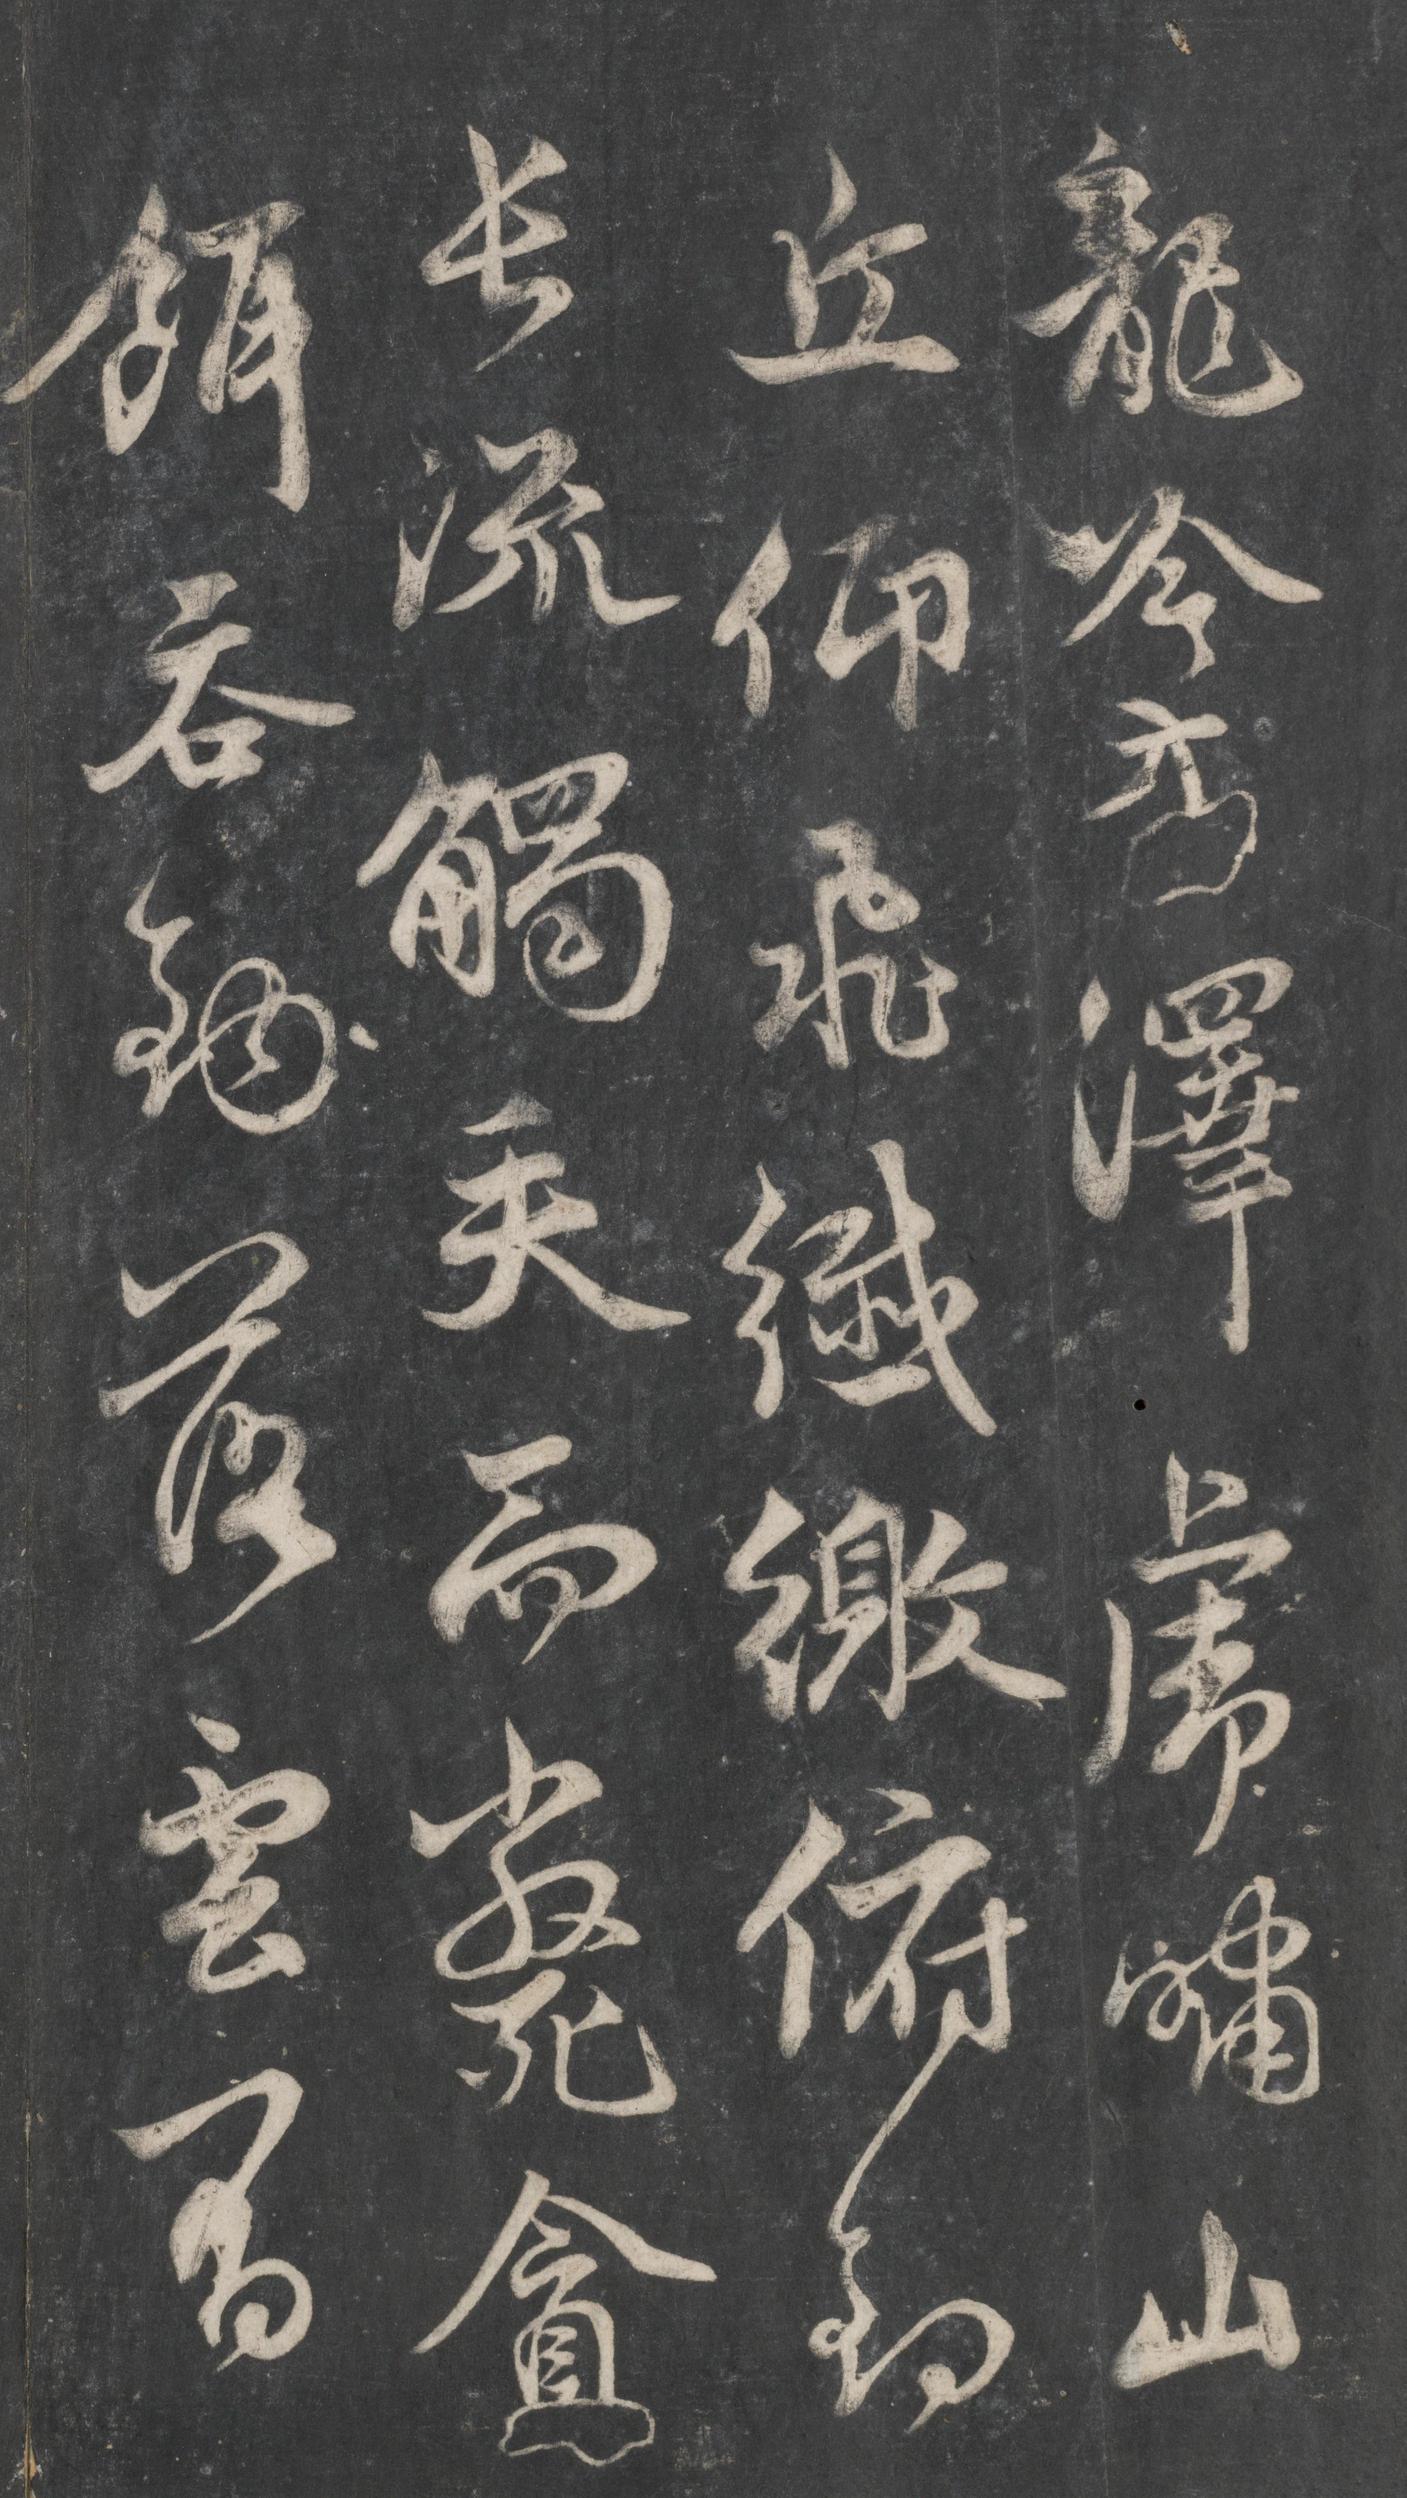 龍吟方澤虎嘯山
丘仰飛纖繳俯釣
長流觸矢而斃貪
餌吞鉤落雲間